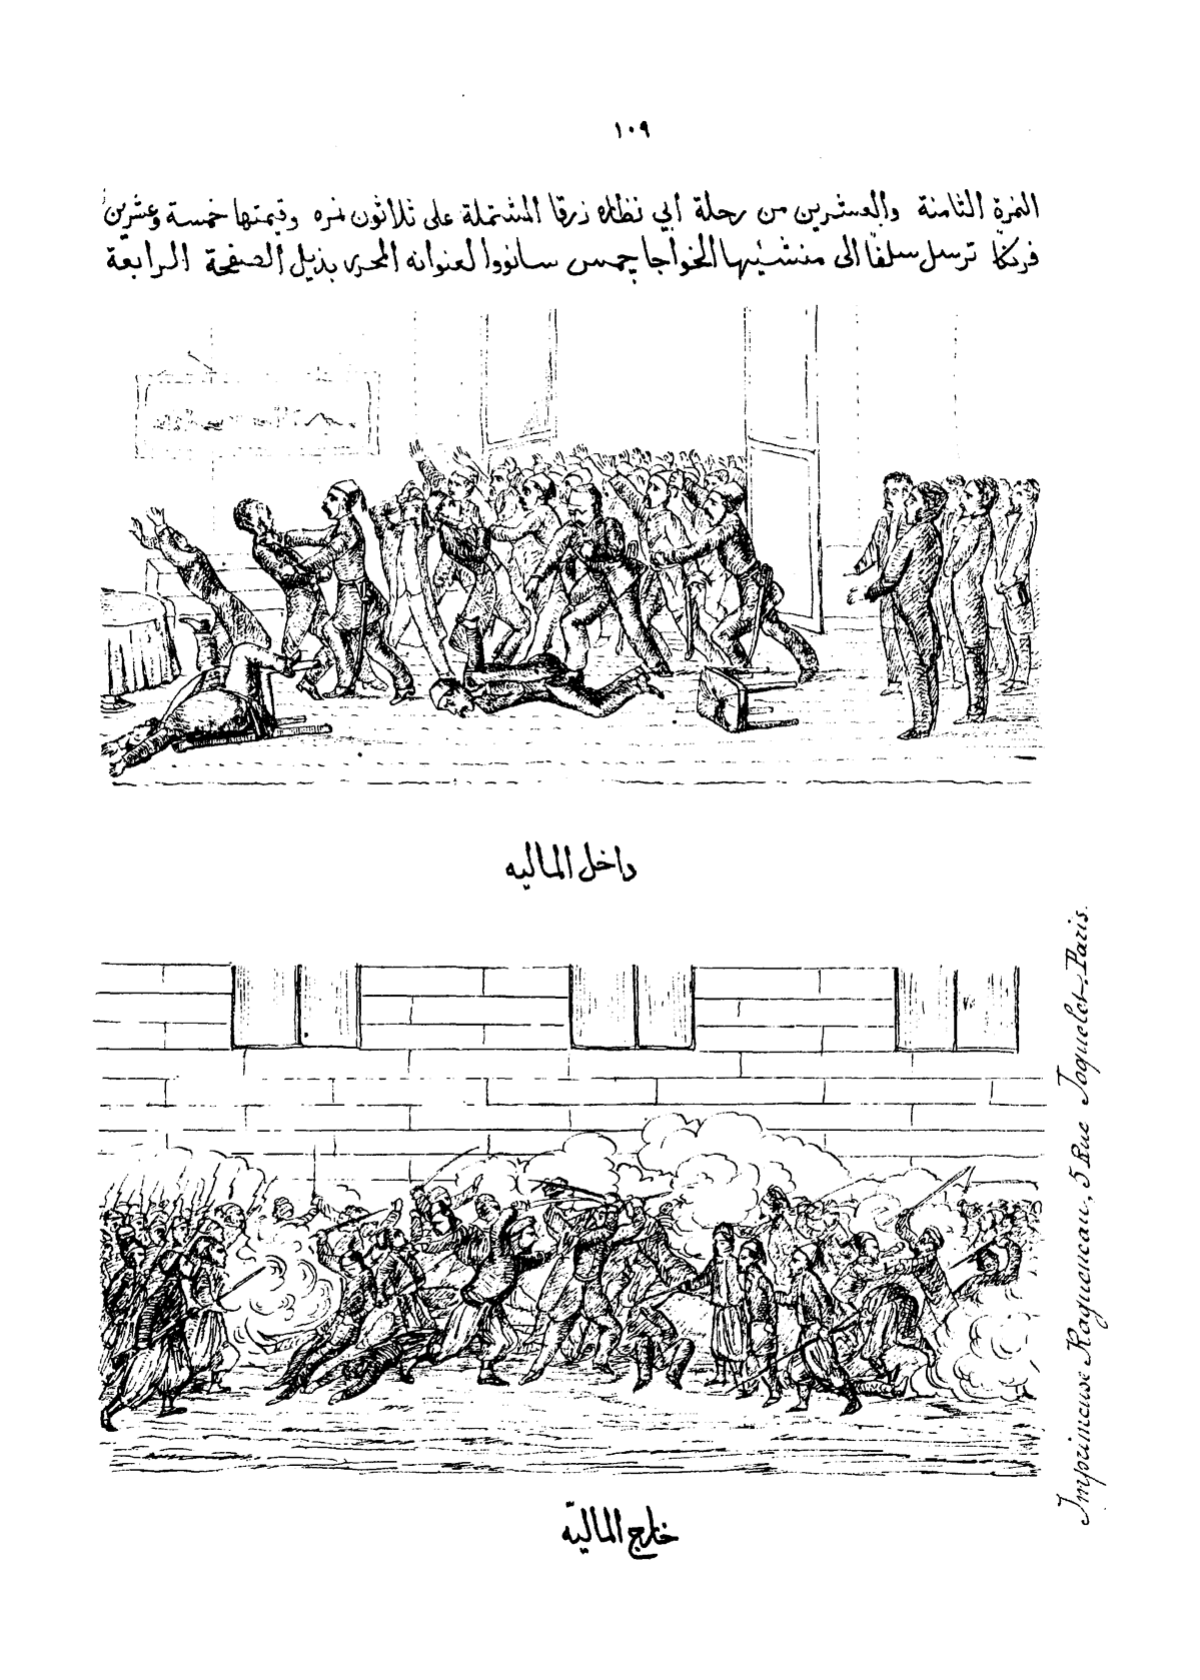 ١٠٩
النمرة الثامنة والعشرين من رحلة أبي نظاره زرقا المشتملة على ثلاثون نمره وقيمتها خمسة وعشرين
فرنكا ترسل سلفا الى منشئيها الخواجا جمس سانووا لعنوانه المحرر بذيل الصفيحة الرابعة
داخل الماليه
خارج الماليّه
Imprimeuse Ragueneau, 5 Rue Joquelet, Paris.